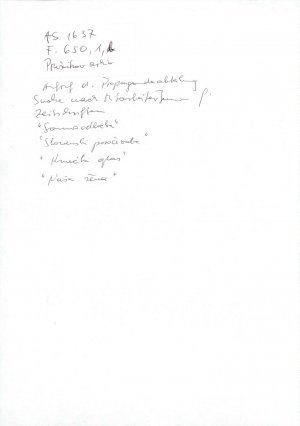 AS 1637
F. 650, 1,
Aufruf d. Propagandaabteilung
Suche nach MitarbeiterInnen f.
Zeitschriften
"Slovenski poročevalec"
"Kmečki glas"
"Naša žena"